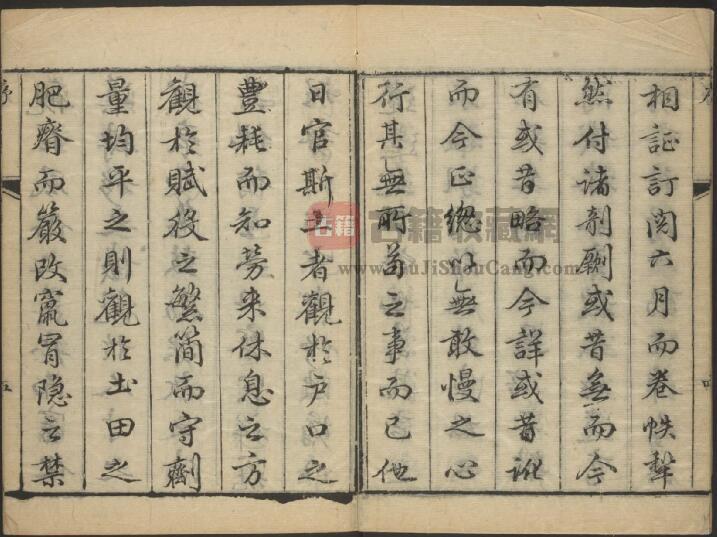 相証訂閱六月而卷帙犂
然付諸剞劂或昔無而今
有或昔略而今詳或昔訛
而今正總以無敢慢之心
行其無所苟之事而已他
日官斯土者觀於户口之
豊耗而知勞来休息之方
觀於賦役之繁簡而守劑
量均平之則觀於土田之
肥瘠而嚴改竄冐隐之禁
序
古籍 古籍收藏網
www.GuJiShouCang.com